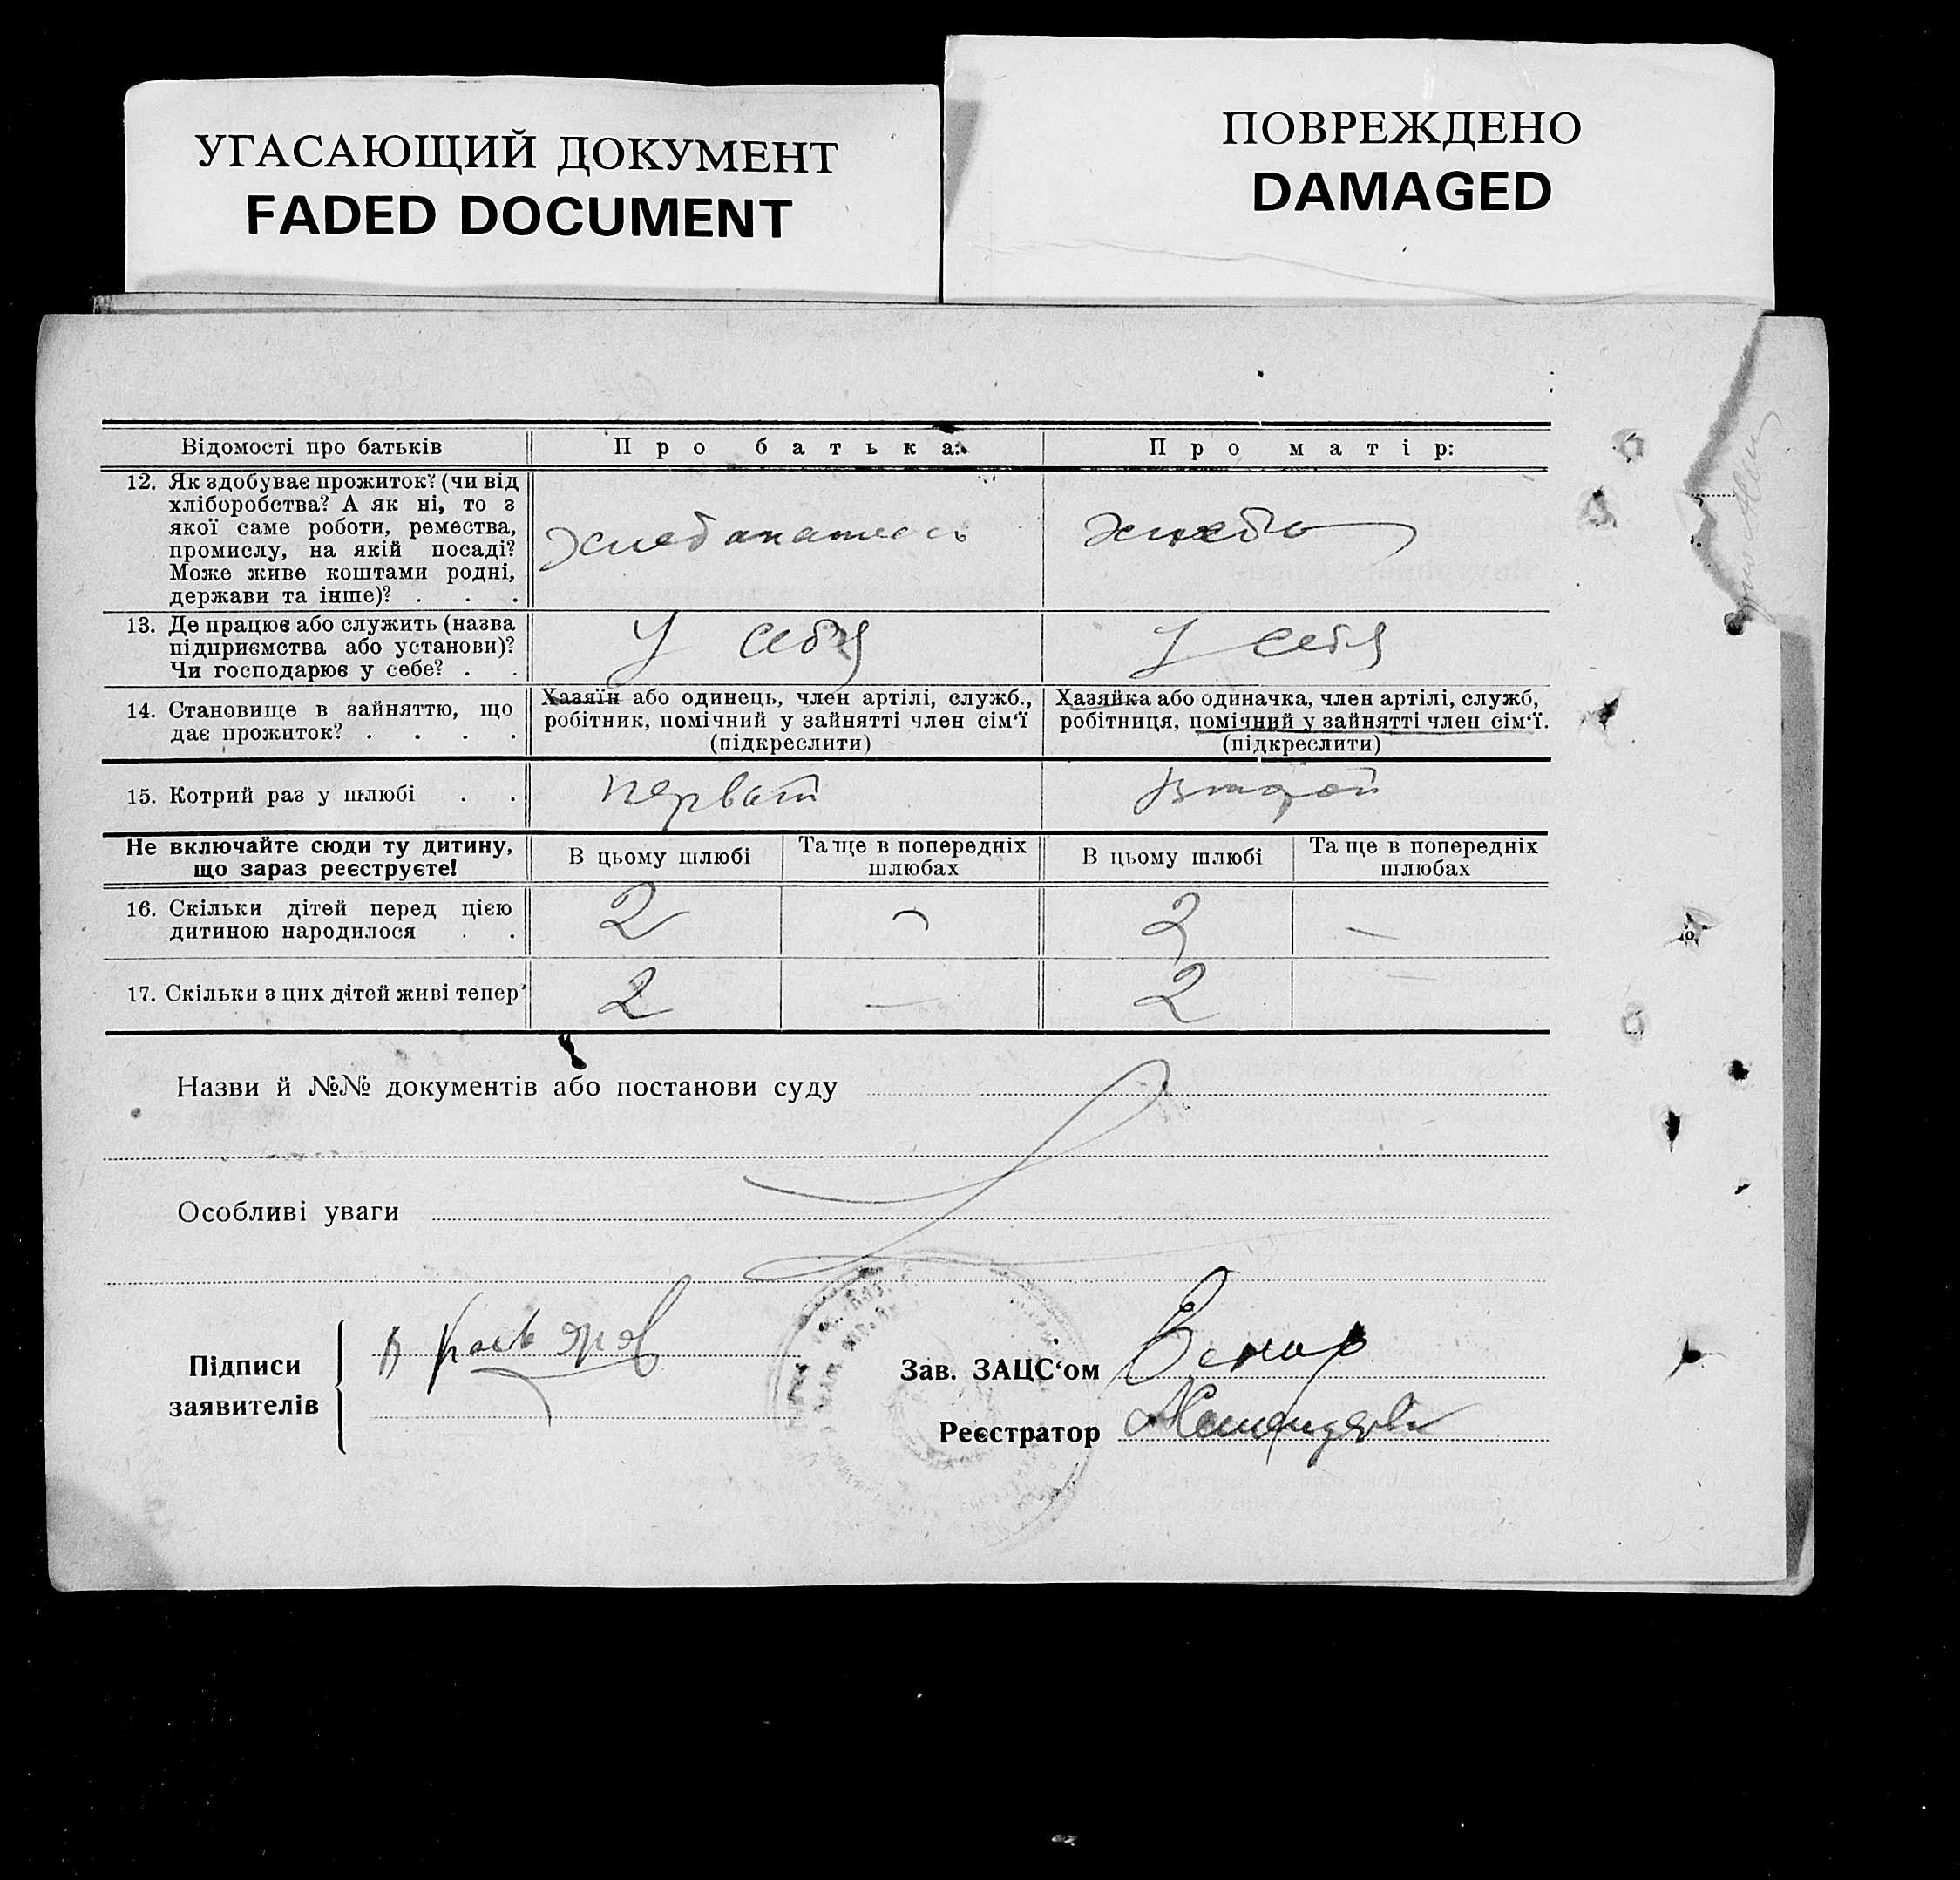 УГАСАЮЩИЙ ДОКУМЕНТ
FADED DOCUMENT
ПОВРЕЖДЕНО
DAMAGED
Відомості про батьків
Про батька:
Про матір:
12. Як здобуває прожиток? (чи від
хліборобства? А як ні, то з
якої саме роботи, ремества,
промислу, на якій посаді?
Може живе коштами родні,
держави та інше)? . . .
13. Де працює або служить (назва
підприємства або установи)?
Чи господарює у себе? . .
У себя
У себя
14. Становище в зайняттю, що
дає прожиток? . . . .
Хазяїн або одинець, член артілі, служб.,
робітник, помічний у зайнятті член сім‘ї
(підкреслити)
Хазяйка або одиначка, член артілі, служб,
робітниця, помічний у зайнятті член сім‘ї.
(підкреслити)
15. Котрий раз у шлюбі . .
первый
второй
Не включайте сюди ту дитину,
що зараз реєструєте!
В цьому шлюбі
Та ще в попередніх
шлюбах
В цьому шлюбі
Та ще в попередніх
шлюбах
16. Скільки дітей перед цією
дитиною народилося . .
2
—
2
—
17. Скільки з цих дітей живі тепер
2
—
2
—
Назви й №№ документів або постанови суду
Особливі уваги
Підписи
заявителів
Зав. ЗАЦС‘ом
Реєстратор